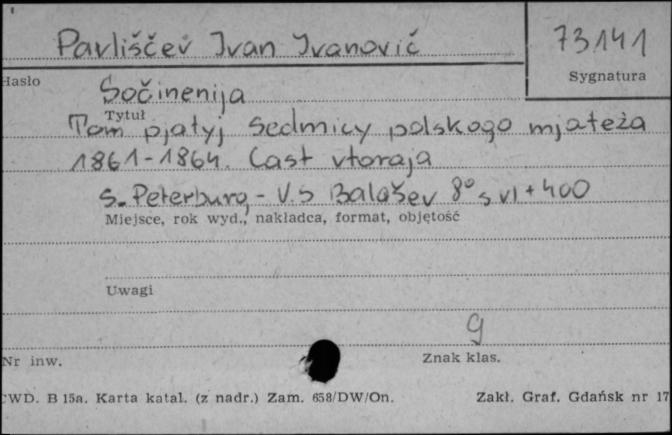 Pavliščev Ivan Ivanovič
73141
Hasło
Sygnatura
Sočinenija
Tytuł
Tom pjatyj Sedmicy polskogo mjateža
1861-1864. Cast vtoraja
S. Peterburg - V.S Balašev 8° s VI + 400
Miejsce, rok wyd., nakładca, format, objętość
Uwagi
g
Nr inw.
Znak klas.
CWD. B 15a. Karta katal. (z nadr.) Zam. 658/DW/On.
Zakł. Graf. Gdańsk nr 17